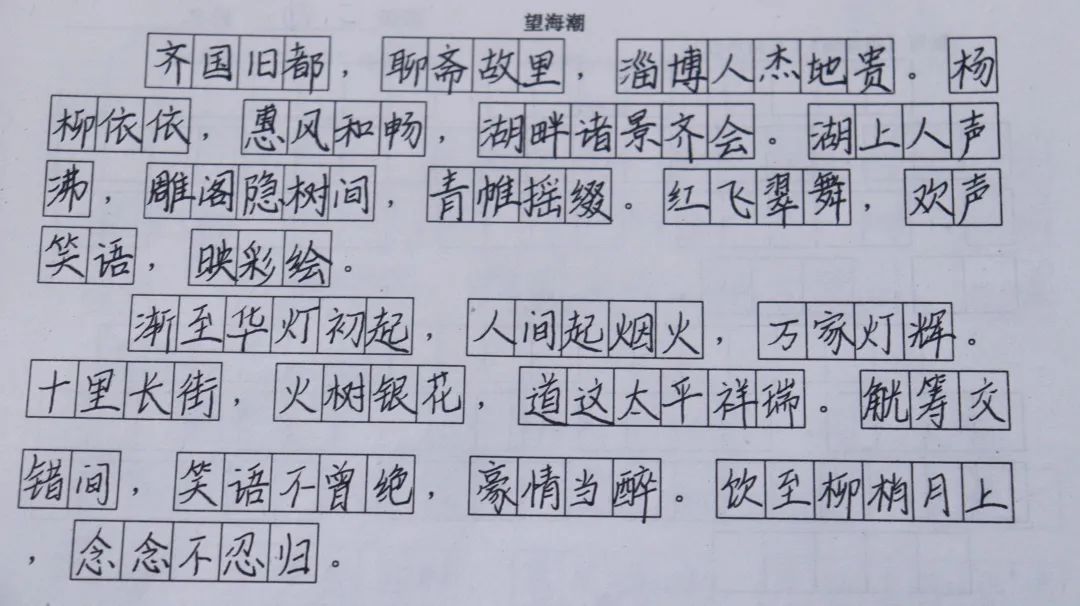 望海潮
齐国旧都，聊斋故里，淄博人杰地贵。杨
柳依依，惠风和畅，湖畔诸景齐会。湖上人声
沸，雕阁隐树间，青帷摇缀。红飞翠舞，欢声
笑语，映彩绘。
渐至华灯初起，人间起烟火，万家灯辉。
十里长街，火树银花，道这太平祥瑞。觥筹交
错间，笑语不曾绝，豪情当醉。饮至柳梢月上
，念念不忍归。